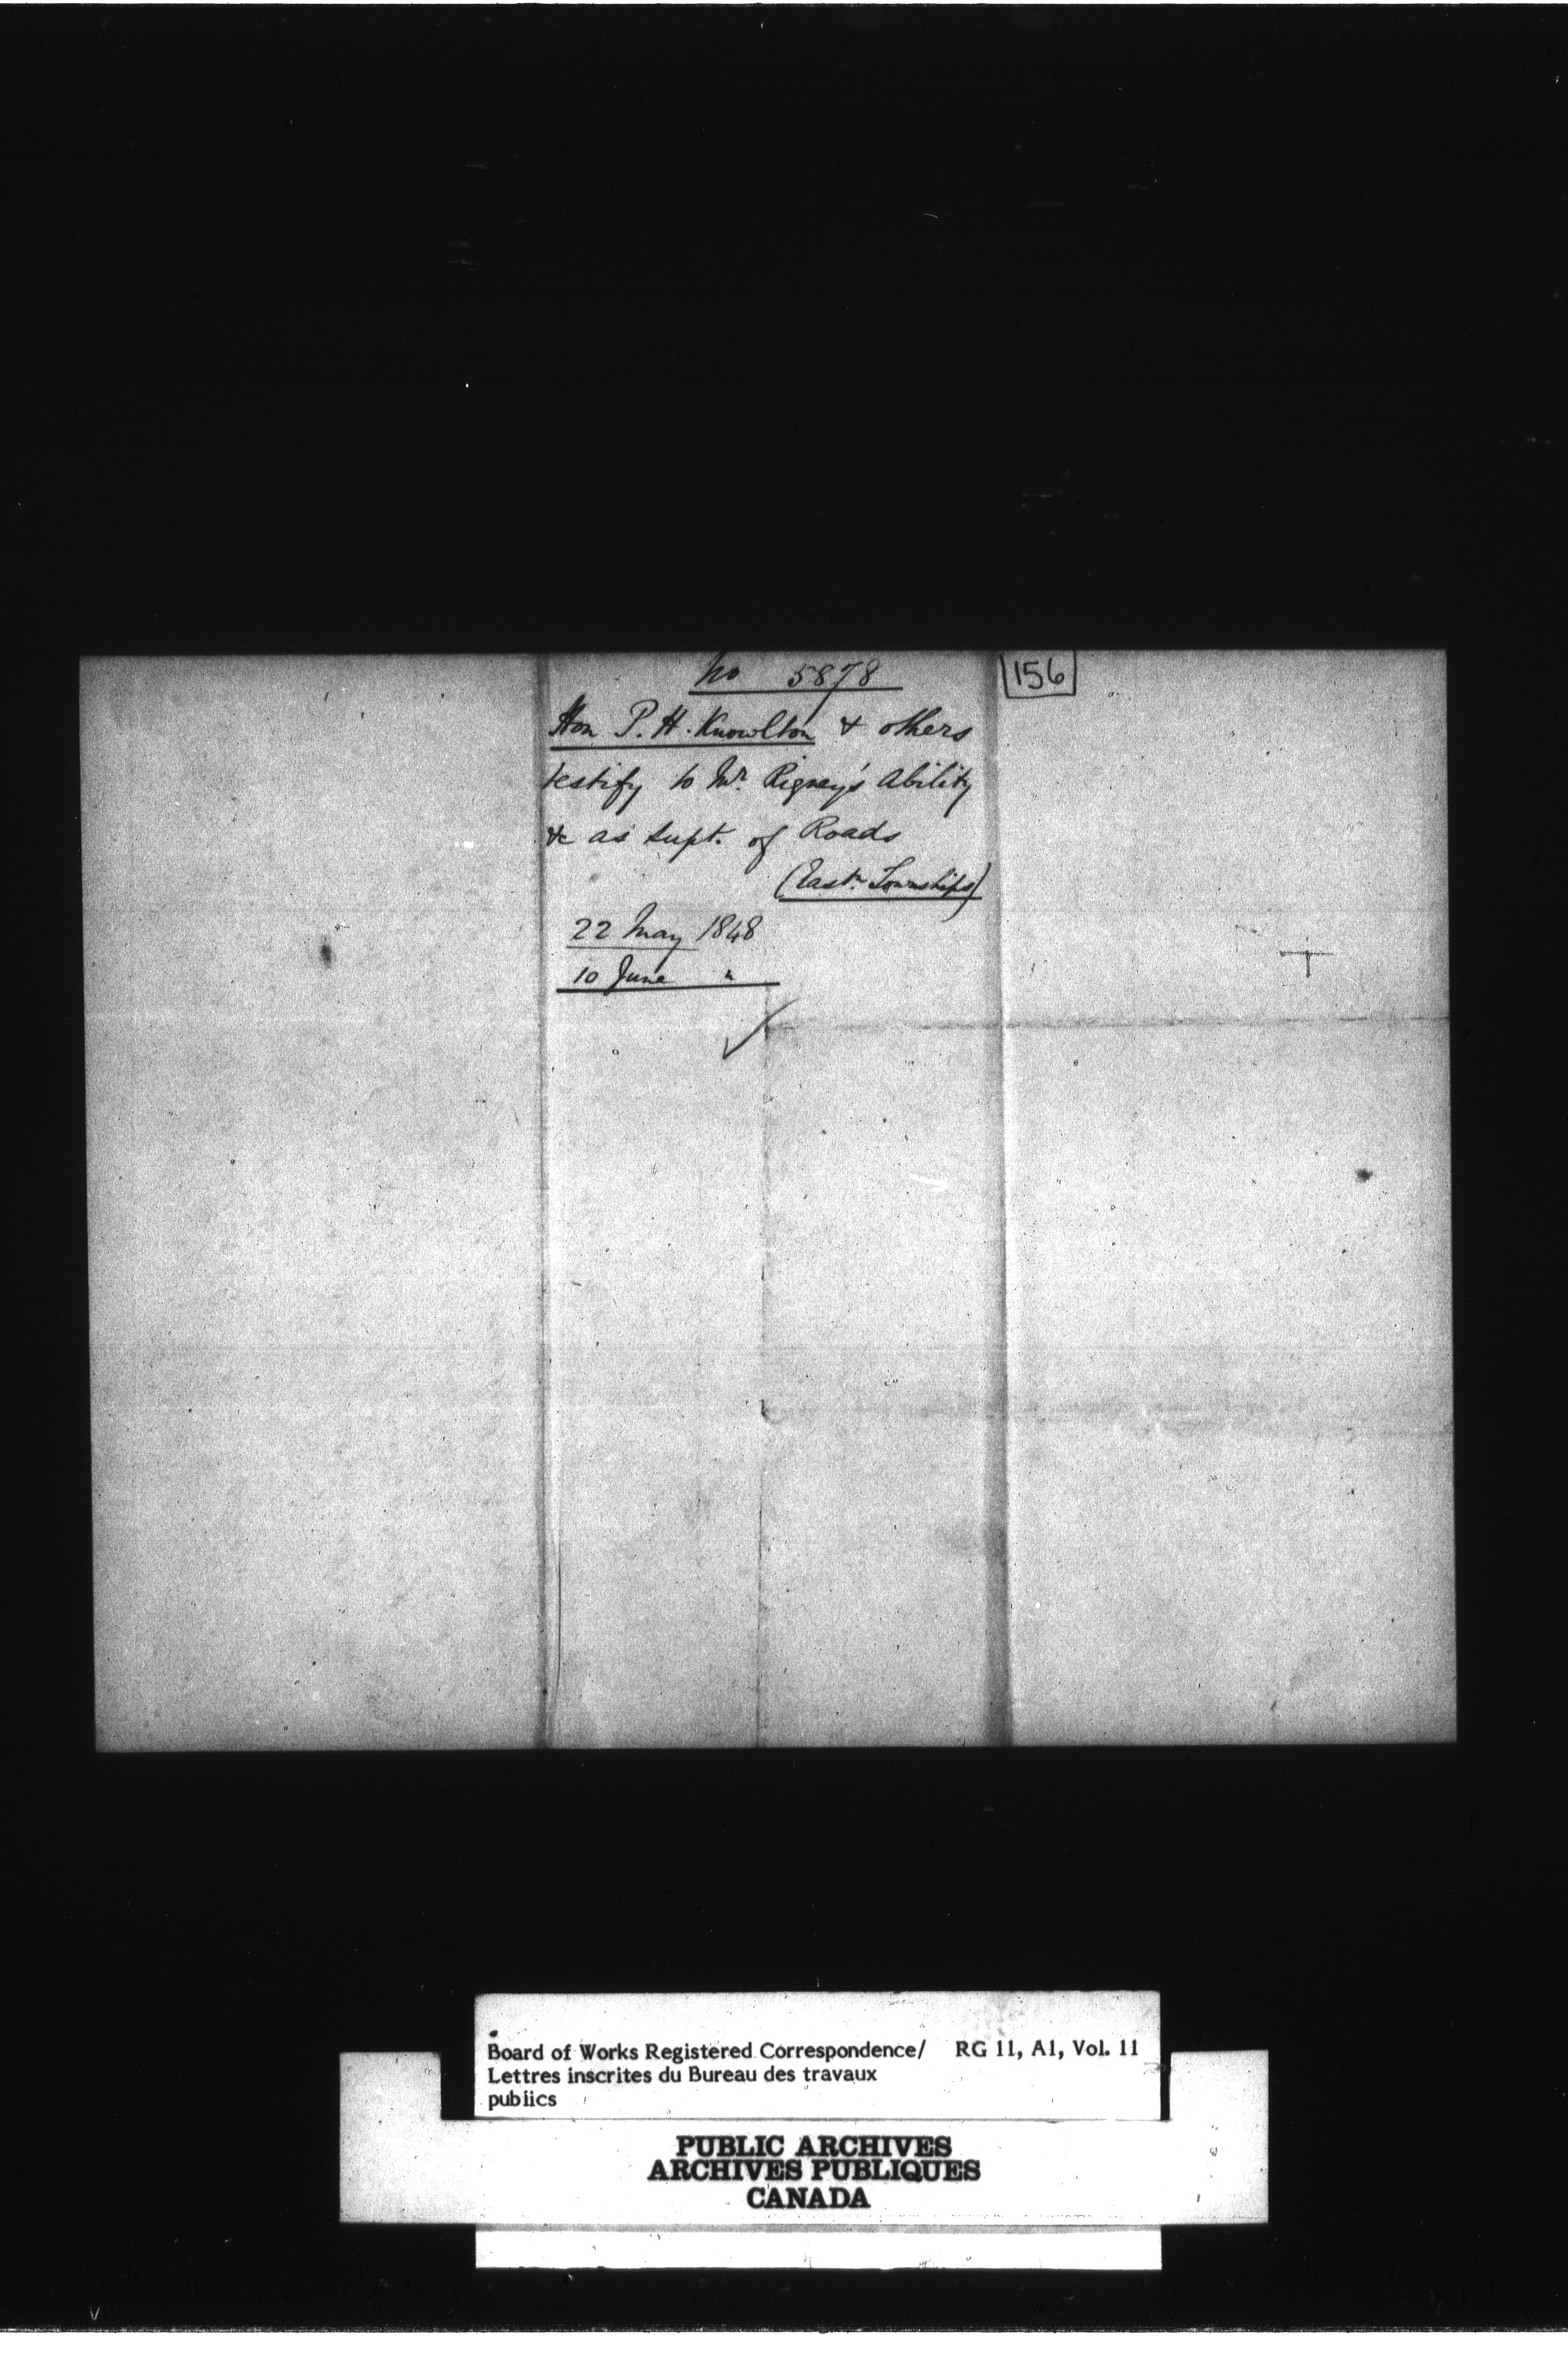 No 5878
156
Hon P. H. Knowlton & others
testify to Mr. Rigney's ability
&c as Supt. of Roads
(Eastn. Townships)
22 May 1848
10 June "
Board of Works Registered Correspondence/ RG 11, A1, Vol. 11
Lettres inscrites du Bureau des travaux
publics
PUBLIC ARCHIVES
ARCHIVES PUBLIQUES
CANADA